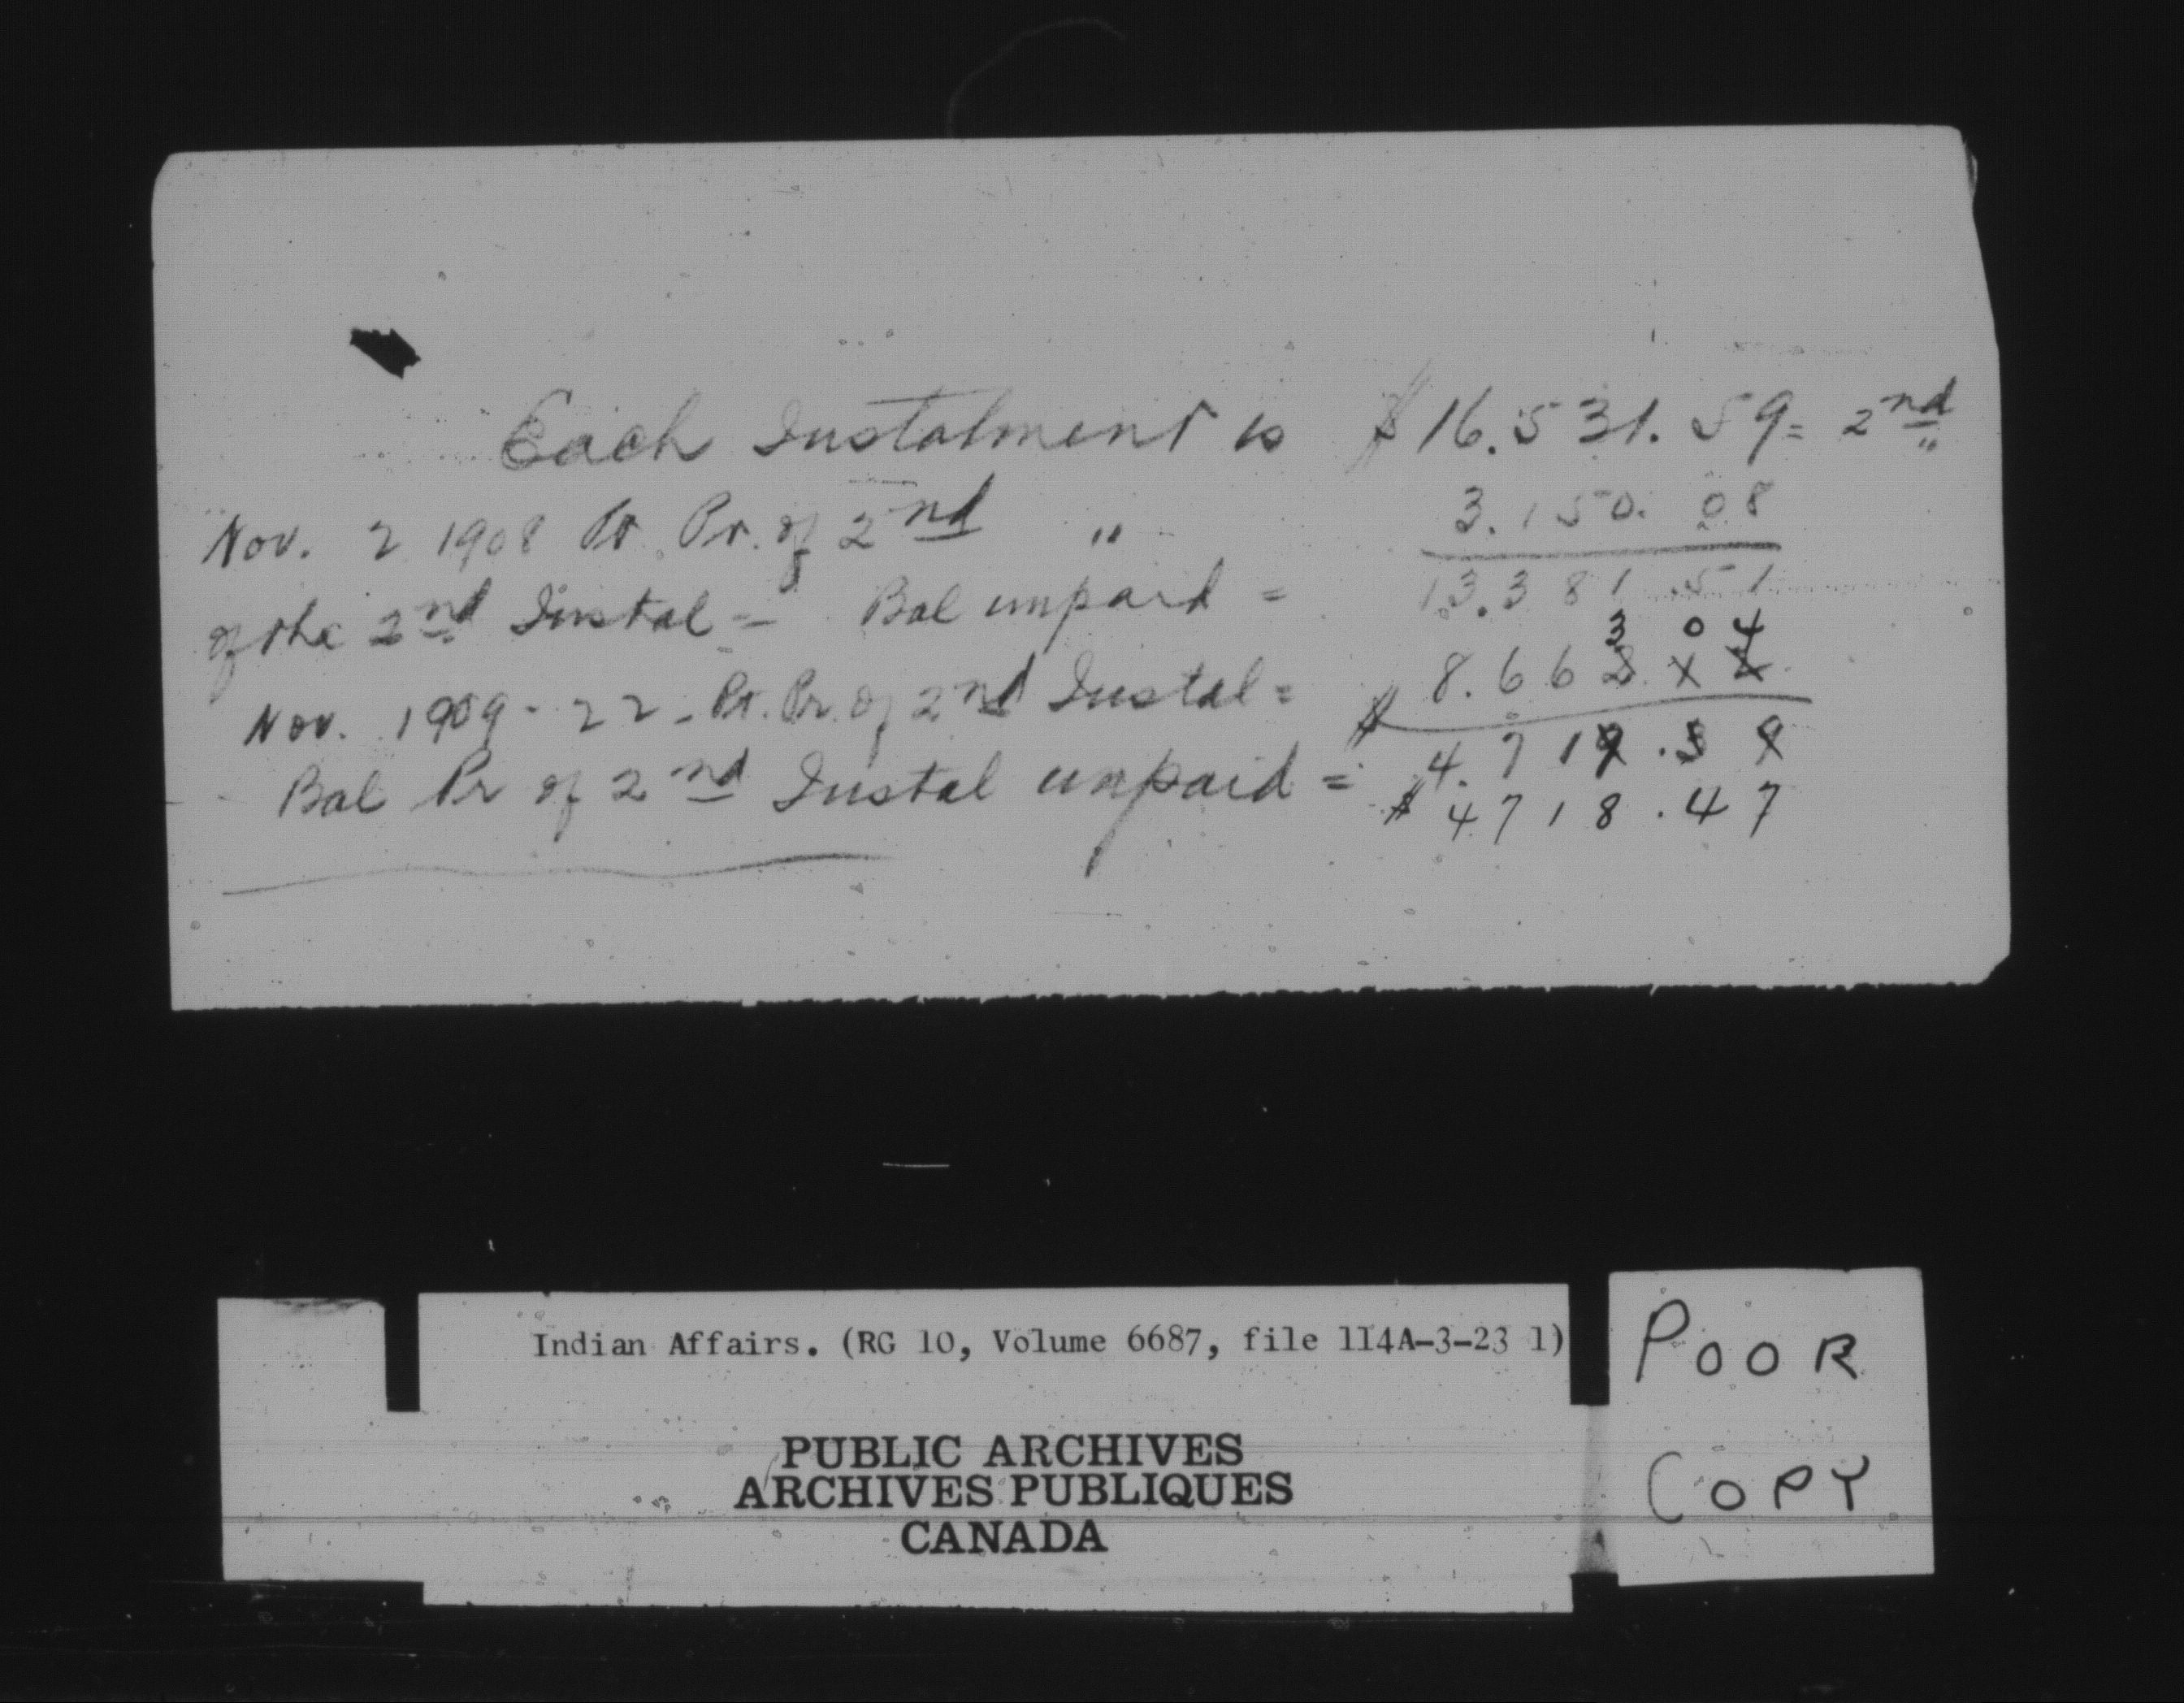 Each Instalment is $16.531.59 = 2nd "
Nov. 2 1908 Pt. Pr. of 2nd " 3.150.08
of the 2nd Instal = Bal unpaid = 13.381.51
3 04
Nov. 1909 - 22 - Pt. Pr. of 2nd Instal = 8.662
$ 4.719.39
Bal Pr of 2nd Instal unpaid = $4718.47
Indian Affairs. (RG 10, Volume 6687, file 114A-3-23 1)
PUBLIC ARCHIVES
ARCHIVES PUBLIQUES
CANADA
POOR
COPY